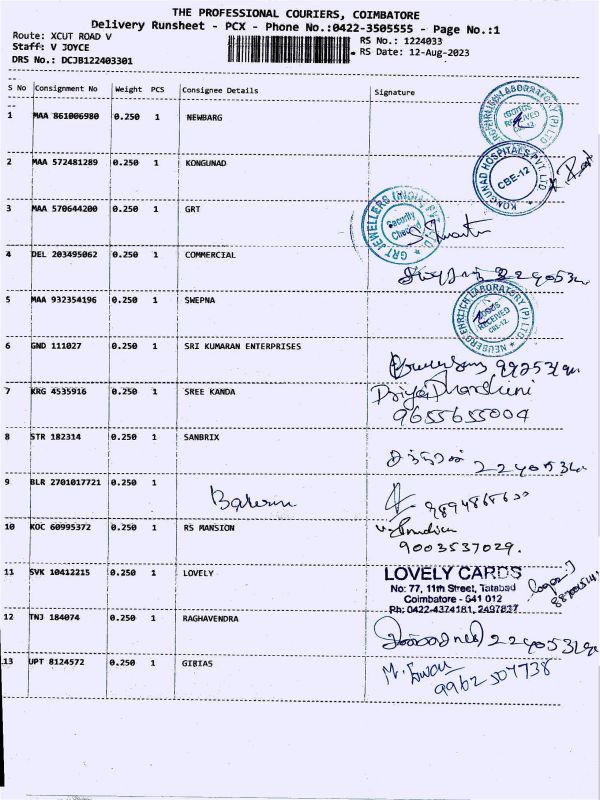 THE PROFESSIONAL COURIERS, COIMBATORE
Delivery Runsheet - PCX - Phone No.:0422-3505555 - Page No.:1
Route: XCUT ROAD V
RS No.: 1224033
Staff: V JOYCE
RS Date: 12-Aug-2023
DRS No.: DCJB122403301
S No Consignment No Weight PCS Consignee Details Signature
1 MAA 861006980 0.250 1 NEWBARG
GOODS RECEIVED
2 MAA 572481289 0.250 1 KONGUNAD
KONGUNAD HOSPITALS PVT. LTD. CBE-12
3 MAA 570644200 0.250 1 GRT
GRT JEWELLERS (INDIA) PVT. LTD. Security Checked
4 DEL 203495062 0.250 1 COMMERCIAL
5 MAA 932354196 0.250 1 SWEPNA
NEUBERG EHRLICH LABORATORY (P) LTD GOODS RECEIVED CBE-12.
6 GND 111027 0.250 1 SRI KUMARAN ENTERPRISES
7 KRG 4535916 0.250 1 SREE KANDA
Priya Dharshini
9655655004
8 STR 182314 0.250 1 SANBRIX
9 BLR 2701017721 0.250 1
10 KOC 60995372 0.250 1 RS MANSION
9003537029.
11 SVK 10412215 0.250 1 LOVELY
LOVELY CARDS
No: 77, 11th Street, Tatabad
Coimbatore - 641 012
Ph: 0422-4374181, 2497837
12 TNJ 184074 0.250 1 RAGHAVENDRA
13 UPT 8124572 0.250 1 GIBIAS
9962 507738